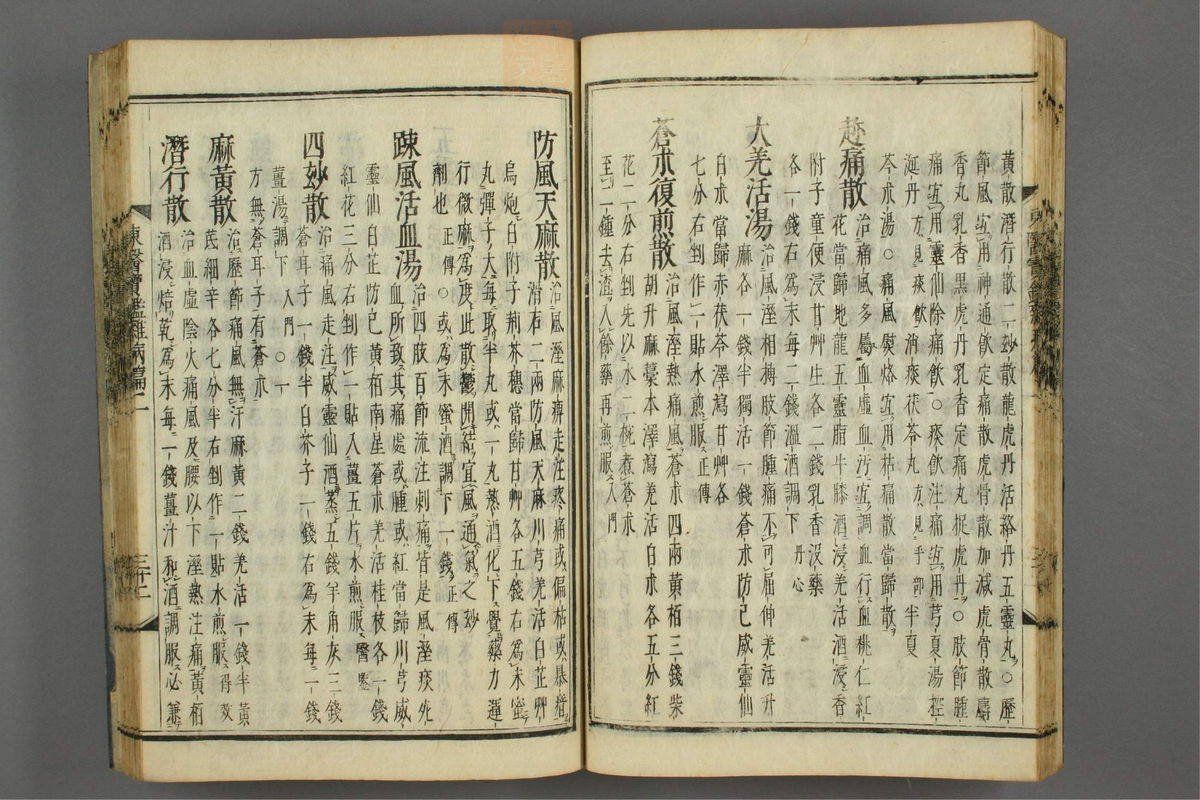 黃散潛行散二妙散龍虎丹活絡丹五靈丸○歷
節風宜用神通飮定痛散虎骨散加減虎骨散麝
香丸乳香黑虎丹乳香定痛丸捉虎丹○肢節腫
痛宜用靈仙除痛飮○痰飮注痛宜用芎夏湯控
涎丹方見痰飮消痰茯苓丸方見手部半夏
芩朮湯○痛風熨烙宜用枯痛散當歸散
趂痛散治痛風多屬血虛血汚宜調血行血桃仁紅
花當歸地龍五靈脂牛膝酒浸羌活酒浸香
附子童便浸甘艸生各二錢乳香沒藥
各一錢右爲末每二錢溫酒調下丹心
大羌活湯治風溼相搏肢節腫痛不可屈伸羌活升
麻各一錢半獨活一錢蒼朮防己威靈仙
白朮當歸赤茯苓澤瀉甘艸各
七分右剉作一貼水煎服正傳
蒼朮復煎散治風溼熱痛風蒼朮四兩黃栢三錢柴
胡升麻藁本澤瀉羌活白朮各五分紅
花一分右剉先以水二椀煮蒼朮
至一鍾去渣入餘藥再煎服入門
防風天麻散治風溼麻痺走注疼痛或偏枯或暴瘖
滑石二兩防風天麻川芎羌活白芷艸
烏炮白附子荊芥穗當歸甘艸各五錢右爲末蜜
丸彈子大每取半丸或一丸熱酒化下覺藥力運
行微麻爲度此散鬱開結宣風通氣之妙
劑也正傳○或爲末蜜酒調下一錢正傳
踈風活血湯治四肢百節流注刺痛皆是風溼痰死
血所致其痛處或腫或紅當歸川芎威
靈仙白芷防己黃栢南星蒼朮羌活桂枝各一錢
紅花三分右剉作一貼入薑五片水煎服醫鑒
四妙散治痛風走注威靈仙酒蒸五錢羊角灰三錢
蒼耳子一錢半白芥子一錢右爲末每一錢
薑湯調下入門○一
方無蒼耳子有蒼朮
麻黃散治歷節痛風無汗麻黃二錢羌活一錢半黃
芪細辛各七分半右剉作一貼水煎服得效
潛行散治血虛陰火痛風及腰以下溼熱注痛黃栢
酒浸焙乾爲末每一錢薑汁和酒調服必兼
東醫寶鑑雜病篇二
三十二